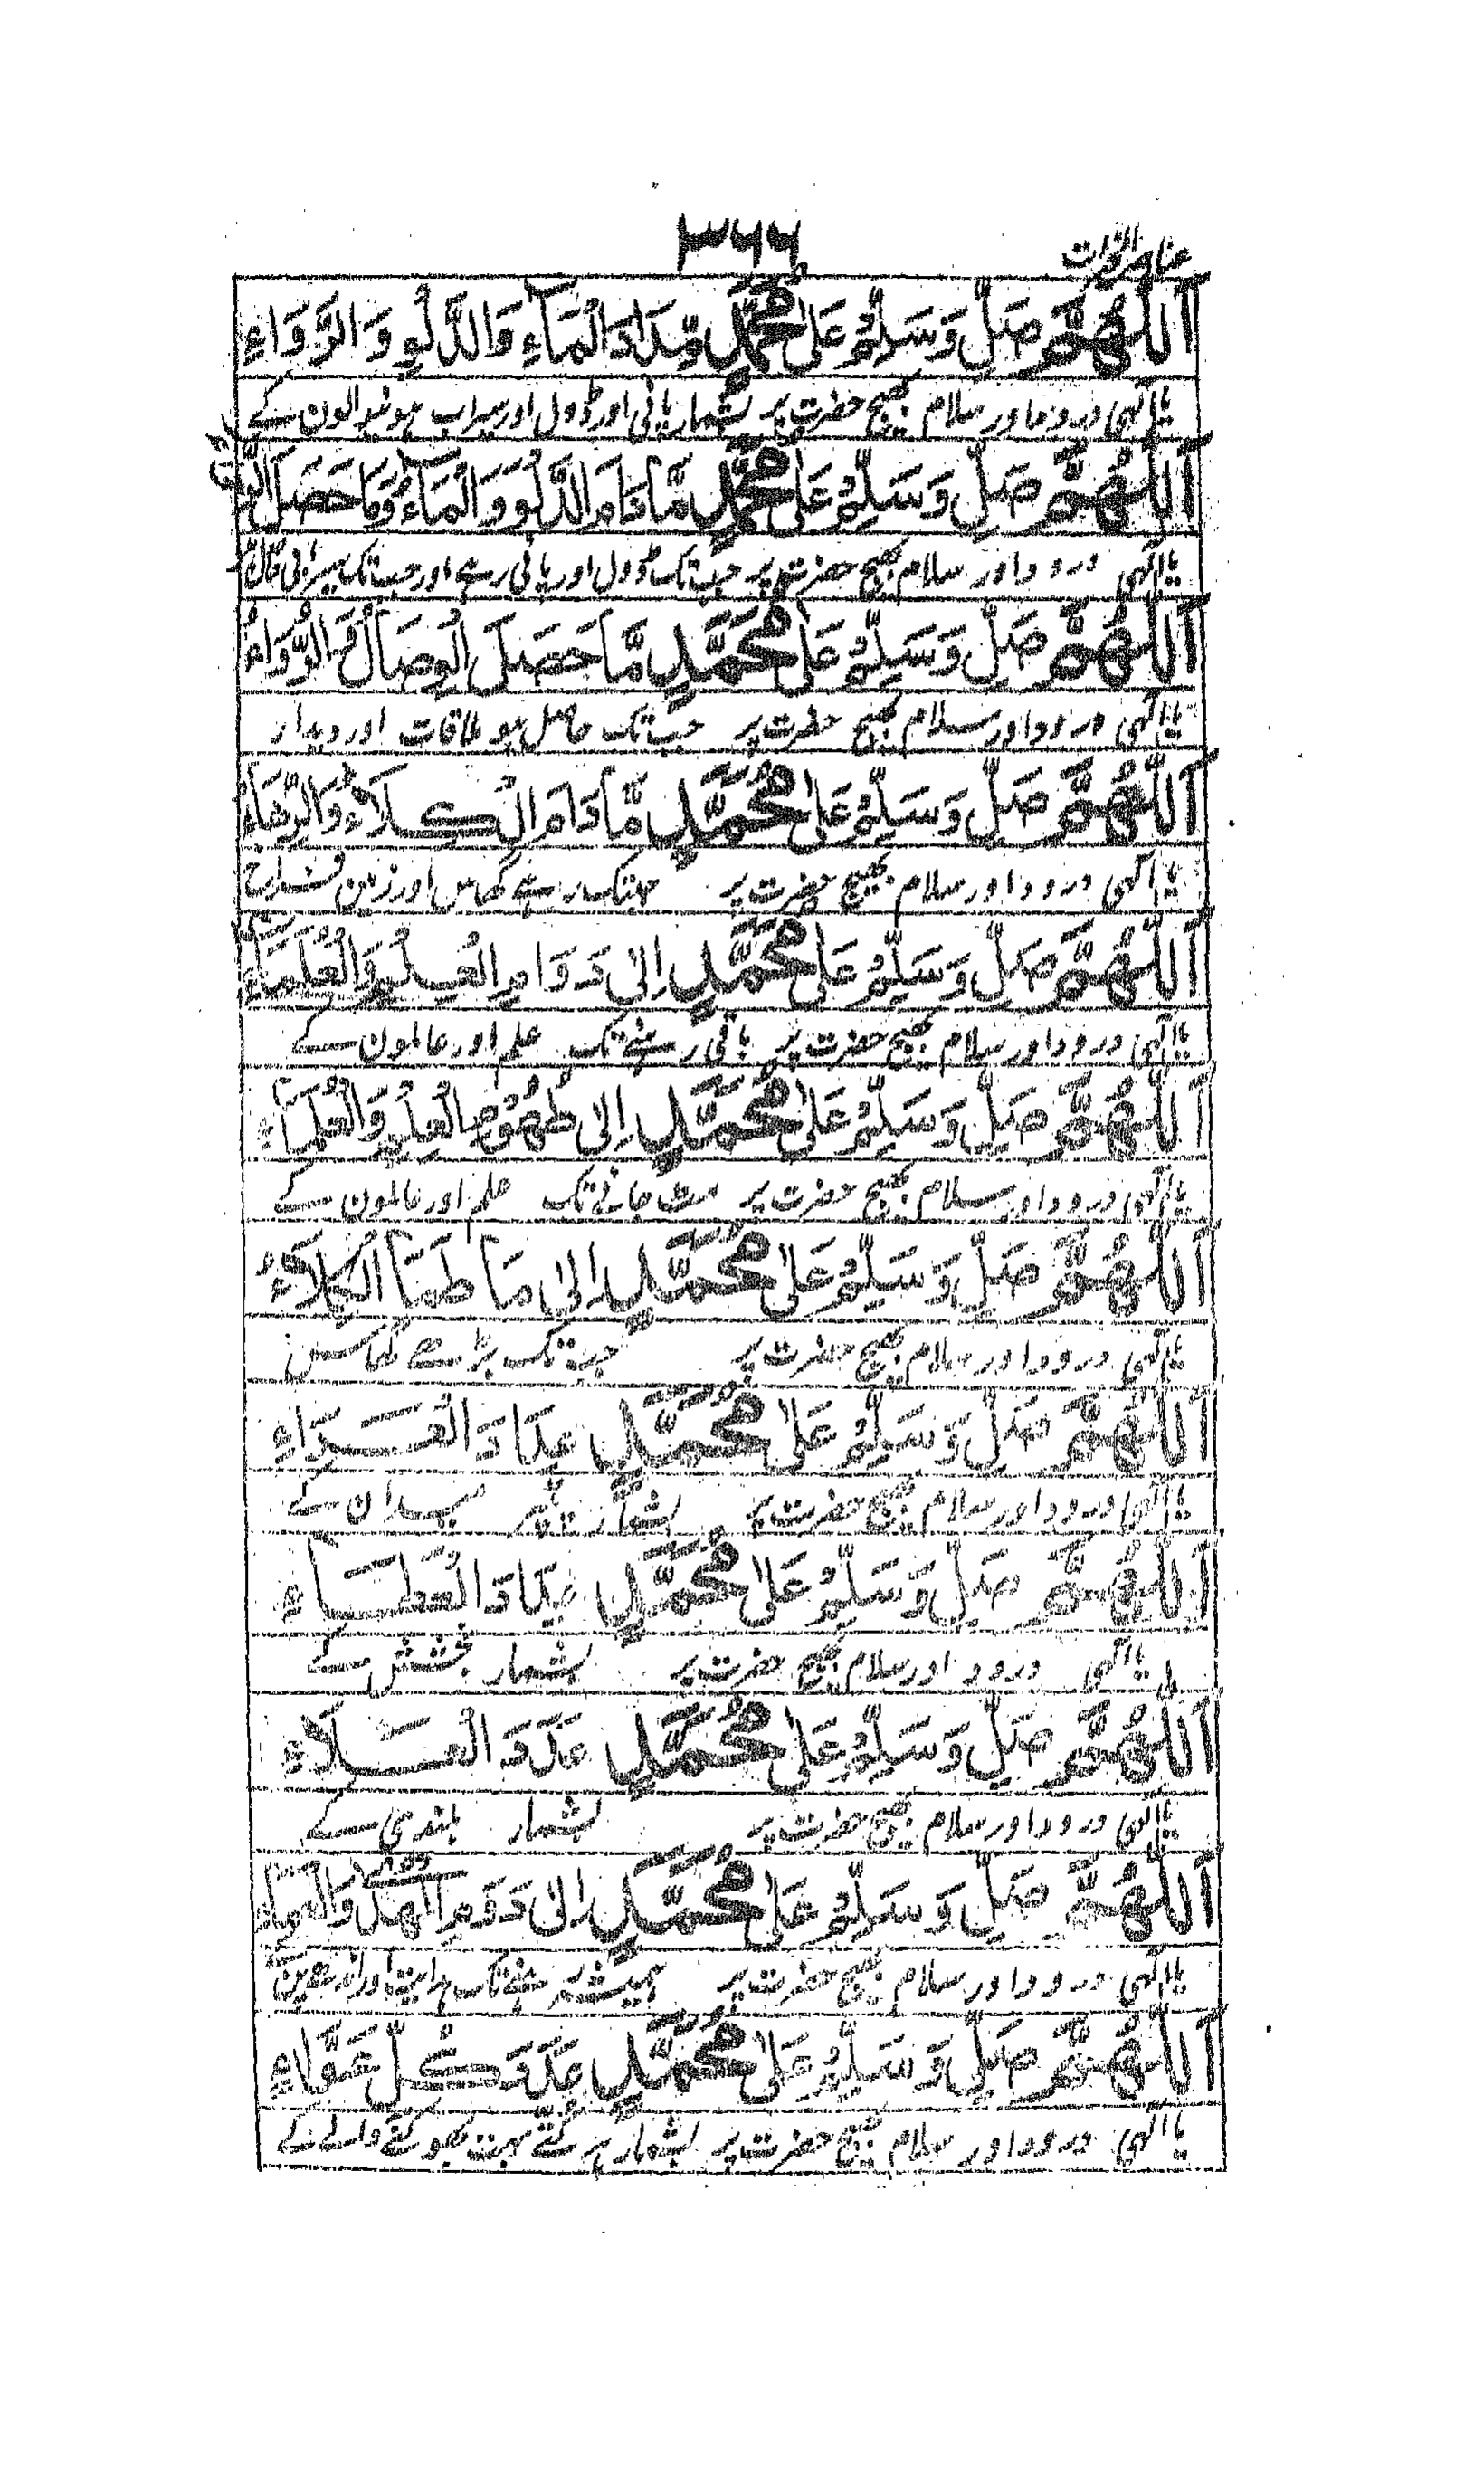 ۳۶۶
عناصر البرکات
اَللّٰهُمَّ صَلِّ وَسَلِّمْ عَلٰى مُحَمَّدٍ مِّدَادَ الْمَآءِ وَالدَّلْوِ وَالرَّوَاءِ
یا الٰہی درود اور سلام بھیج حضرت پر بشمار پانی اور ڈول اور سیراب ہونیوالون کے
اَللّٰهُمَّ صَلِّ وَسَلِّمْ عَلٰى مُحَمَّدٍ مَّا دَامَ الدَّلْوُ وَالْمَآءُ وَمَا حَصَلَ
یا الٰہی درود اور سلام بھیج حضرت پر جب تک ڈول اور پانی رہے اور جب تک سیرابی
اَللّٰهُمَّ صَلِّ وَسَلِّمْ عَلٰى مُحَمَّدٍ مَّا حَصَلَ الْوِصَالُ وَالرُّوَاءُ
یا الٰہی درود اور سلام بھیج حضرت پر جب تک حاصل ہو ملاقات اور دیدار
اَللّٰهُمَّ صَلِّ وَسَلِّمْ عَلٰى مُحَمَّدٍ مَّا دَامَ الْكَلَاءُ
یا الٰہی درود اور سلام بھیج حضرت پر جبتک رہے گھاس اور زمین
اَللّٰهُمَّ صَلِّ وَسَلِّمْ عَلٰى مُحَمَّدٍ اِلٰى دَوَامِ الْعِلْمِ وَالْعُلَمَآءِ
یا الٰہی درود اور سلام بھیج حضرت پر باقی رہنے تک علم اور عالمون کے
اَللّٰهُمَّ صَلِّ وَسَلِّمْ عَلٰى مُحَمَّدٍ اِلٰى الْعِلْمِ وَالْعُلَمَآءِ
یا الٰہی درود اور سلام بھیج حضرت پر مٹ جانے تک علم اور عالمون کے
اَللّٰهُمَّ صَلِّ وَسَلِّمْ عَلٰى مُحَمَّدٍ اِلٰى مَا طَمَا الْكَلَاءُ
یا الٰہی درود اور سلام بھیج حضرت پر جب تک بڑھے گھاس
اَللّٰهُمَّ صَلِّ وَسَلِّمْ عَلٰى مُحَمَّدٍ عِدَادَ الْعَرَاءِ
یا الٰہی درود اور سلام بھیج حضرت پر بشمار میدان کے
اَللّٰهُمَّ صَلِّ وَسَلِّمْ عَلٰى مُحَمَّدٍ عِدَادَ الْعَطَاءِ
یا الٰہی درود اور سلام بھیج حضرت پر بشمار بخشش کے
اَللّٰهُمَّ صَلِّ وَسَلِّمْ عَلٰى مُحَمَّدٍ عَدَدَ الْعَلَاءِ
یا الٰہی درود اور سلام بھیج حضرت پر بشمار بلندی کے
اَللّٰهُمَّ صَلِّ وَسَلِّمْ عَلٰى مُحَمَّدٍ اِلٰى
یا الٰہی درود اور سلام بھیج حضرت پر ہمیشہ رہنے تک ہدایت اور
اَللّٰهُمَّ صَلِّ وَسَلِّمْ عَلٰى مُحَمَّدٍ عَدَدَ كُلِّ عَوَّاءٍ
یا الٰہی درود اور سلام بھیج حضرت پر بشمار ہر کتے بہت بھوکنے والے کے